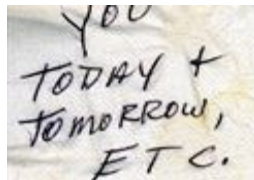 YOU
TODAY +
TOMORROW,
ETC.